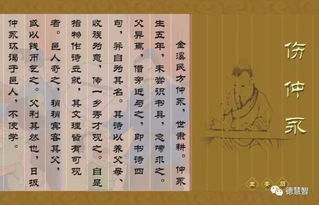 伤仲永
金溪民方仲永，世隶耕。仲永
生五年，未尝识书具，忽啼求之。
父异焉，借旁近与之，即书诗四
句，并自为其名。其诗以养父母、
收族为意，传一乡秀才观之。自是
指物作诗立就，其文理皆有可观
者。邑人奇之，稍稍宾客其父，
或以钱币乞之。父利其然也，日扳
仲永环谒于邑人，不使学。
德慧智